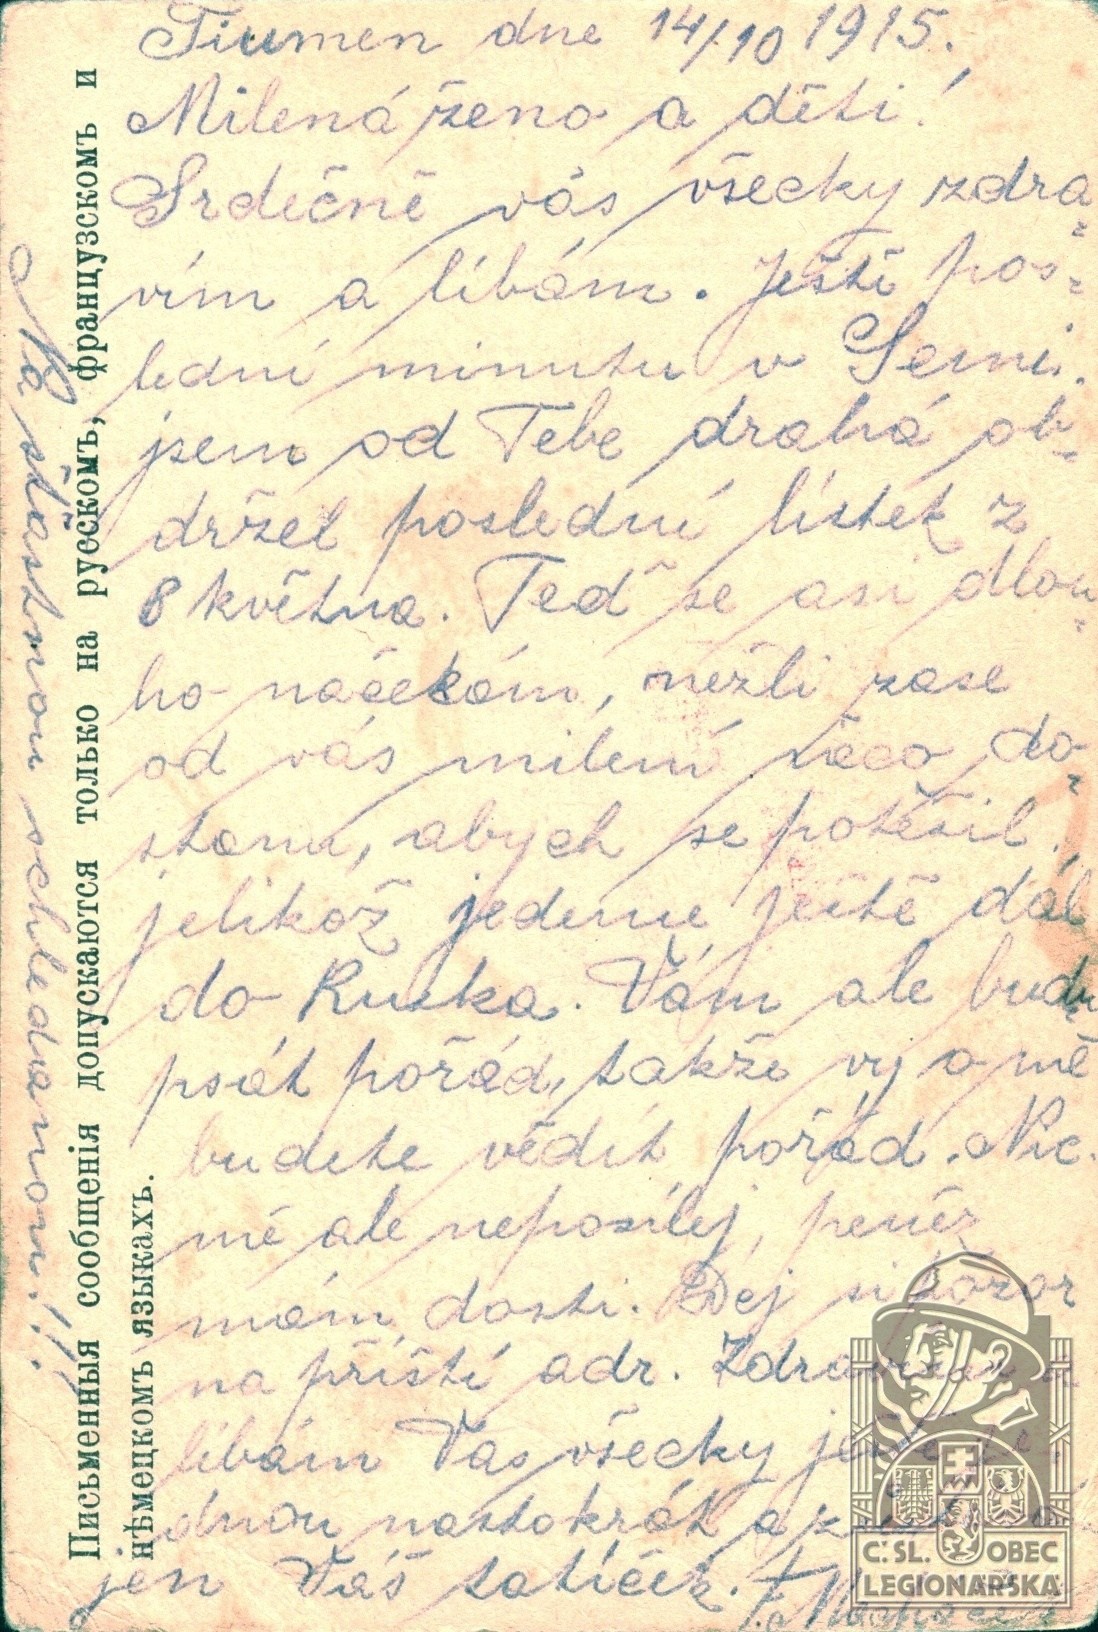 Tiumen dne 14/10 1915.
Milená ženo a děti!
Srdečně vás všecky zdra-
vím a líbám. Ještě pos-
lední minutu v Semi.
jsem od Tebe drahá ob-
držel poslední lístek z
8 května. Teď se asi dlou-
ho načekám, nežli zase
od vás milená něco do-
stanu, abych se potěšil,
jelikož jedeme ještě dál
do Ruska. Vám ale budu
psát pořád, takže vy o mě
budete vědít pořád. Nic
mě ale neposílej, peněz
mám dosti. Dej si pozor
na příští adr. Zdravím a
líbám Vas všecky ještě je-
dnou nastokrát a
jen Váš tatíček.
Na šťastnou schledanou!!
Письменныя сообщенія допускаются только на русскомъ, французскомъ и
нѣмецкомъ языкахъ.
Č. SL. OBEC
LEGIONÁŘSKÁ